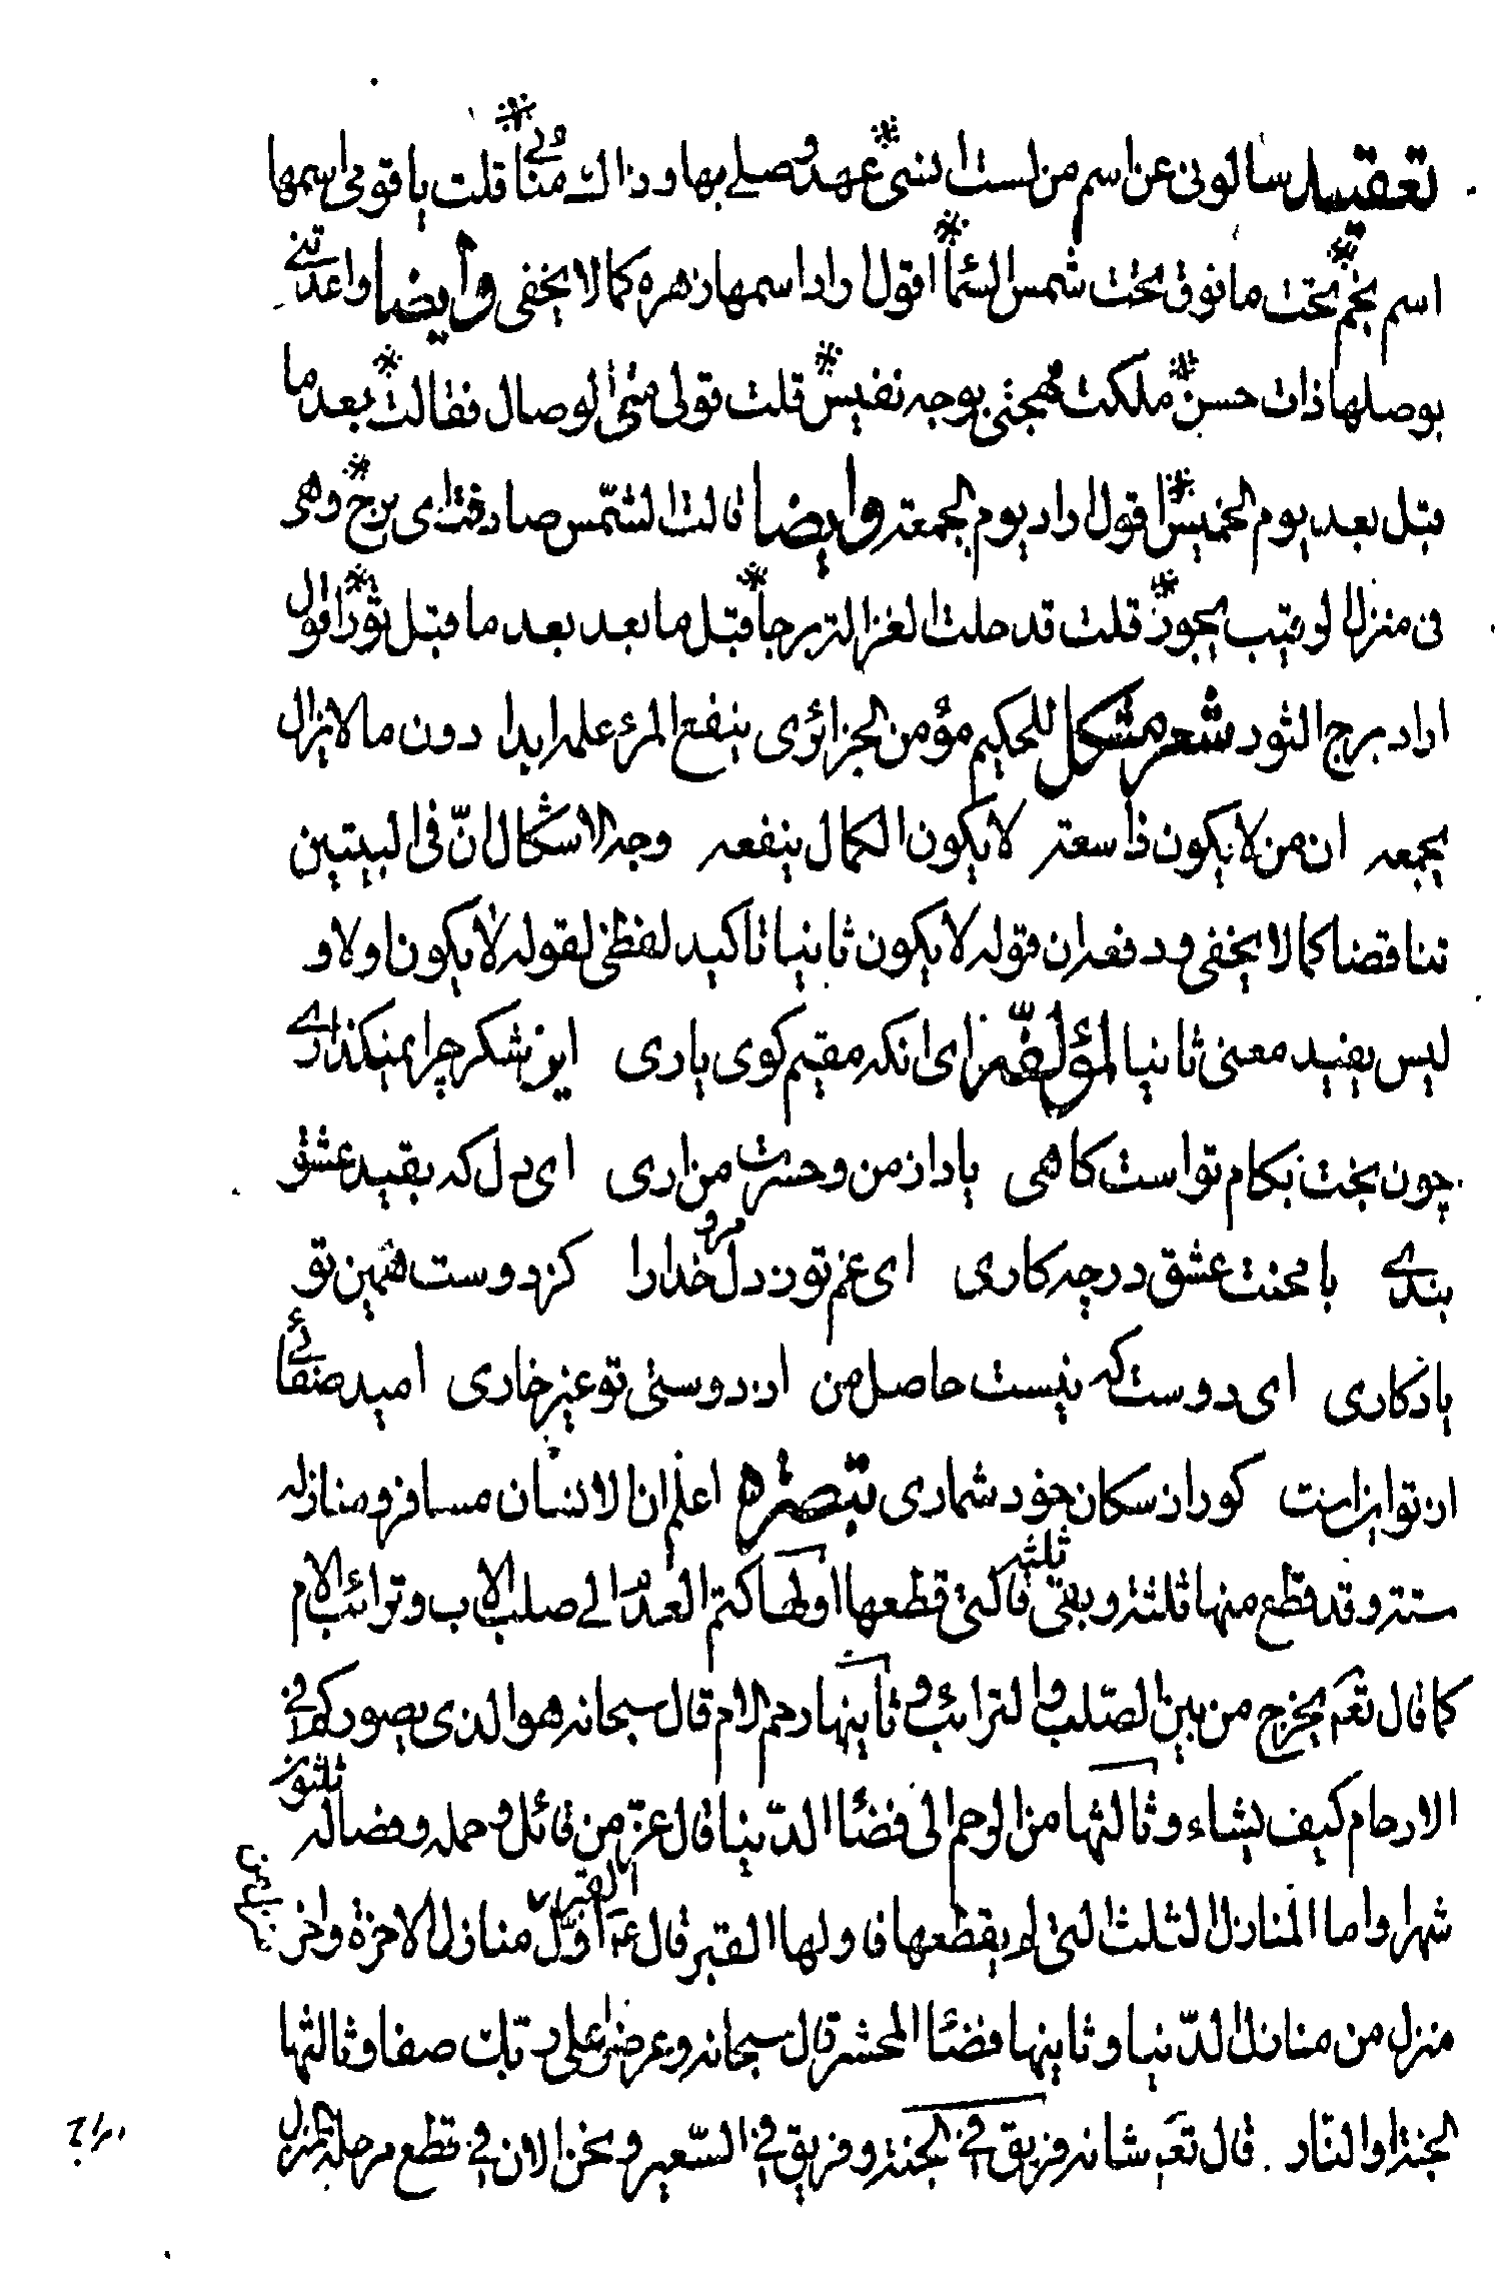 تعقيد سالونی عن اسم من لست انسی عهد وصلی بها وذاک مُنائی قلت یا قومی اسمها
اسم نجم تحت ما فوق تحت شمس السماء اقول اراد اسمها زهره کما لا یخفی وایضا واعدتنی
بوصلها ذات حسن ملکت مهجتی بوجه نفیس قلت قولی متی الوصال فقالت بعد ما
قبل بعد یوم الخمیس اقول اراد یوم الجمعة وایضا قالت الشمس صادفت ای برج وهی
فی منزل لوقیب یجوز قلت قد حلت الغزالة برجا قبل ما بعد بعد ما قبل ثور اقول
اراد برج الثور شعر مشکل للحکیم مؤمن الجزائری ینفع المرء علمه ابدا دون ما لا یزال
یجمعه ان من لا یکون ذا سعة لا یکون الکمال ینفعه وجه الاشکال انّ فی البیتین
تناقضا کما لا یخفی ودفعه ان قوله لا یکون ثانیا تاکید لفظی لقوله لا یکون اولا و
لیس یفید معنی ثانیا لمؤلّفه ای انکه مقیم کوی یاری این شکر چرا نمیکذاری
چون بخت بکام تو است کاهی یاد از من و حسرت من اری ای دل که بقید عشق
بندی با محنت عشق در چه کاری ای غم تو ز دل مرو خدا را کز دوست همین تو
یادکاری ای دوست که نیست حاصل من از دوستی تو غیر خاری امید صفائی
از تو اینست کو را ز سکان خود شماری تبصره اعلم ان الانسان مسافر ومنازله
ستة وقد قطع منها ثلثة وبقی ثلثة فالتی قطعها اولها کتم العدم الی صلب الاب وترائب الام
کما قال تعه یخرج من بین الصّلب والترائب وثانیها رحم الام قال سبحانه هو الذی یصورکم فی
الارحام کیف یشاء وثالثها من الرحم الی فضاء الدّنیا قال عز من قائل وحمله وفصاله ثلثون
شهرا واما المنازل الثلث التی لم یقطعها فاولها القبر قال عه القبر اوّل منازل الاخرة واخر
منزل من منازل الدّنیا وثانیها فضاء المحشر قال سبحانه وعرضوا علی ربّک صفا وثالثها
الجنة او النّار. قال تعه شانه فریق فی الجنة وفریق فی السّعیر ونحن الان فی قطع مرحلة المنزل